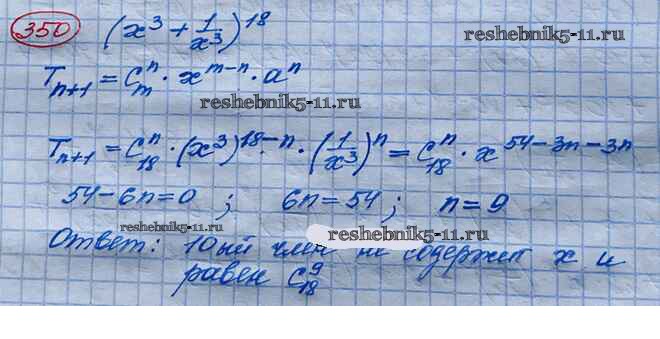 350 (x³ + 1/x³)¹⁸
Tₙ₊₁ = Cₘⁿ · xᵐ⁻ⁿ · aⁿ
reshebnik5-11.ru
Tₙ₊₁ = C₁₈ⁿ · (x³)¹⁸⁻ⁿ · (1/x³)ⁿ = C₁₈ⁿ · x⁵⁴⁻³ⁿ⁻³ⁿ
54-6n=0 ; 6n=54 ; n=9
reshebnik5-11.ru
reshebnik5-11.ru
Ответ: 10ый член не содержит x и
равен C₁₈⁹